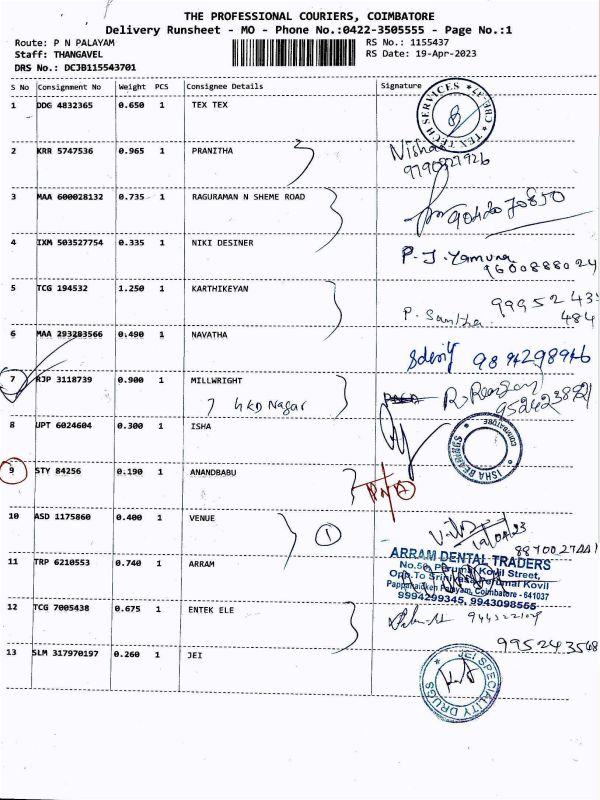 THE PROFESSIONAL COURIERS, COIMBATORE
Delivery Runsheet - MO - Phone No.:0422-3505555 - Page No.:1
Route: P N PALAYAM
RS No.: 1155437
Staff: THANGAVEL
RS Date: 19-Apr-2023
DRS No.: DCJB115543701
S No Consignment No Weight PCS Consignee Details Signature
1 DDG 4832365 0.650 1 TEX TEX
TEX TECH SERVICES * CBE-37 *
2 KRR 5747536 0.965 1 PRANITHA Nisha
9790827926
3 MAA 600028132 0.735 1 RAGURAMAN N SHEME ROAD
9042070850
4 IXM 503527754 0.335 1 NIKI DESINER P. J. Yamuna
9600888024
5 TCG 194532 1.250 1 KARTHIKEYAN
99952435
P. Santha 484
6 MAA 293283566 0.490 1 NAVATHA
9894298946
7 RJP 3118739 0.900 1 MILLWRIGHT
7 GKD Nagar
8 UPT 6024604 0.300 1 ISHA
ISHA BEARINGS COIMBATORE
9 STY 84256 0.190 1 ANANDBABU
PNA
10 ASD 1175860 0.400 1 VENUE
1
19/04/23
11 TRP 6210553 0.740 1 ARRAM
ARRAM DENTAL TRADERS
No.50, Perumal Kovil Street,
Opp.To Srinivasa Perumal Kovil
Pappanaicken Palayam, Coimbatore - 641037
9994299345, 9943098555
12 TCG 7005438 0.675 1 ENTEK ELE
995243548
13 SLM 317970197 0.260 1 JEI
JEI SPECIALITY DRUGS